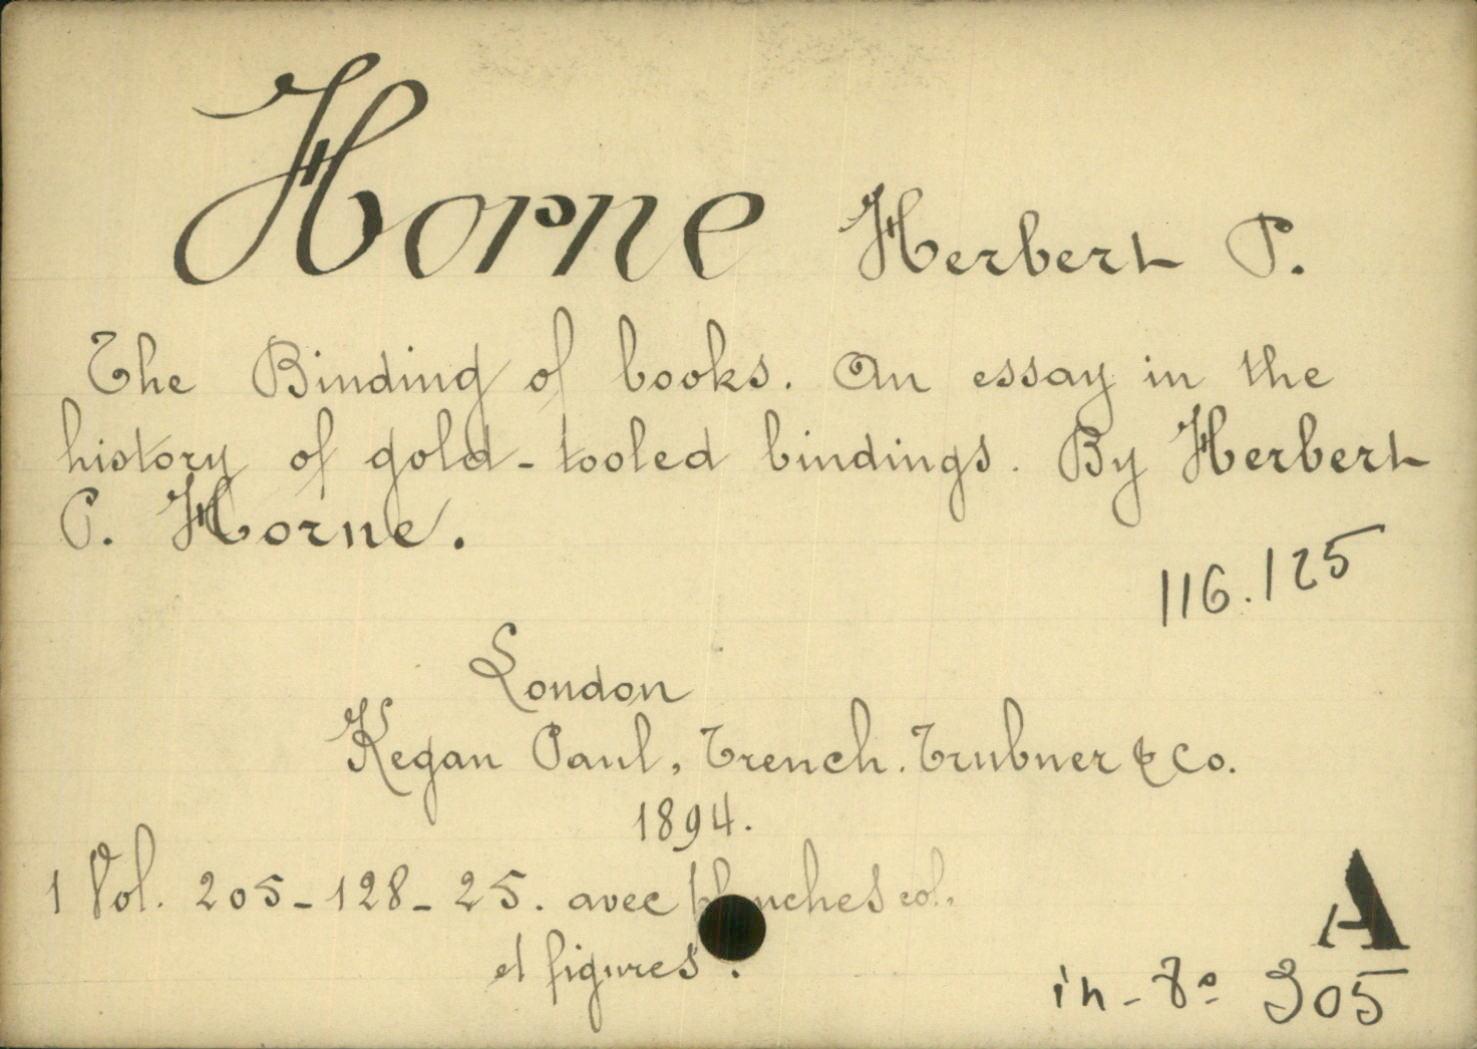 Horne Herbert P.
The Binding of books. An essay in the
history of gold-tooled bindings. By Herbert
P. Horne.
116.125
London
Kegan Paul, Trench. Trubner & Co.
1894.
1 Vol. 205-128-25. avec planches col.
et figures.
A
in-8° 305